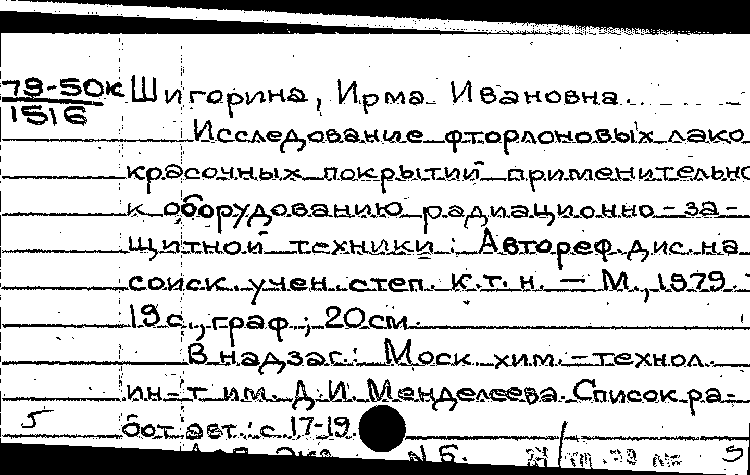 79-50к Шигорина, Ирма Ивановна
1516
Исследование фторлоновых лако
красочных покрытий применительно
к оборудованию радиационно-за-
щитной техники: Автореф. дис. на
соиск. учен. степ. к.т.н. — М., 1979.
19 с., граф.; 20см.
В надзаг.: Моск. хим.-технол.
ин-т им. Д.И. Менделеева. Список ра-
5 бот авт.: с. 17-19
N 5.